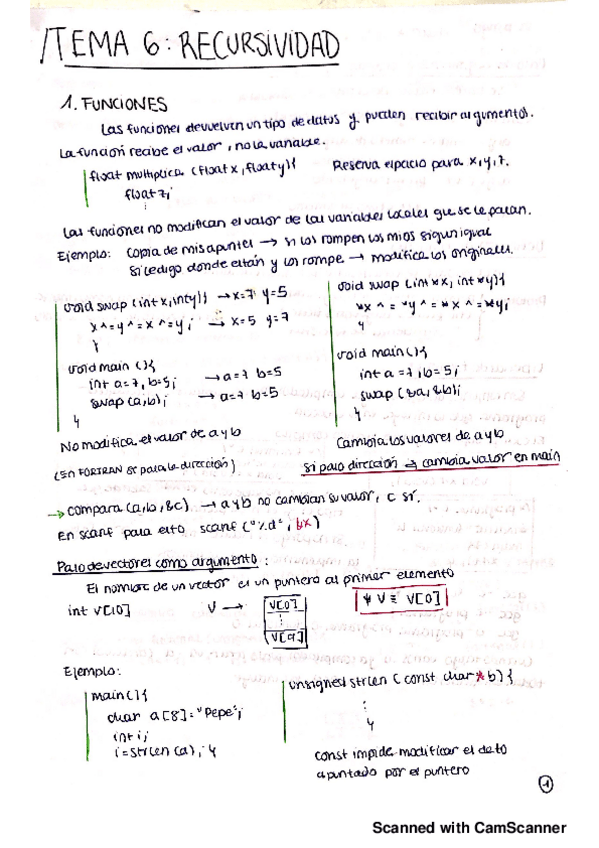 TEMA 6: RECURSIVIDAD
1. FUNCIONES
Las funciones devuelven un tipo de datos y pueden recibir argumentos.
La función recibe el valor, no la variable.
float multiplica (float x, float y){
float z;
⋮
Reserva espacio para x, y, z.
Las funciones no modifican el valor de las variables locales que se le pasan.
Ejemplo: Copia de mis apuntes → si los rompen los mios siguen igual
Si le digo donde están y los rompe → modifica los originales.
void swap (int x, int y){ → x=7 y=5
x^=y^=x^=y; → x=5 y=7
}
void main (){
int a=7, b=5; → a=7 b=5
swap (a,b); → a=7 b=5
}
No modifica el valor de a y b
(En FORTRAN se pasa la dirección)
void swap (int *x, int *y){
*x ^= *y ^= *x ^= *y;
}
void main(){
int a=7, b=5;
swap (&a, &b);
}
Cambia los valores de a y b
Si paso dirección → cambia valor en main
→ compara (a, b, &c) → a y b no cambian su valor, c sí.
En scanf para esto scanf ("%d", &x)
Paso de vectores como argumento:
El nombre de un vector es un puntero al primer elemento
int V[10] V → V[0]
⋮
V[9]
* V ≡ V[0]
Ejemplo:
main(){
char a[8]="Pepe";
int i;
i=strlen(a); }
unsigned strlen (const char *b){
⋮
}
const impide modificar el dato
apuntado por el puntero
1
Scanned with CamScanner